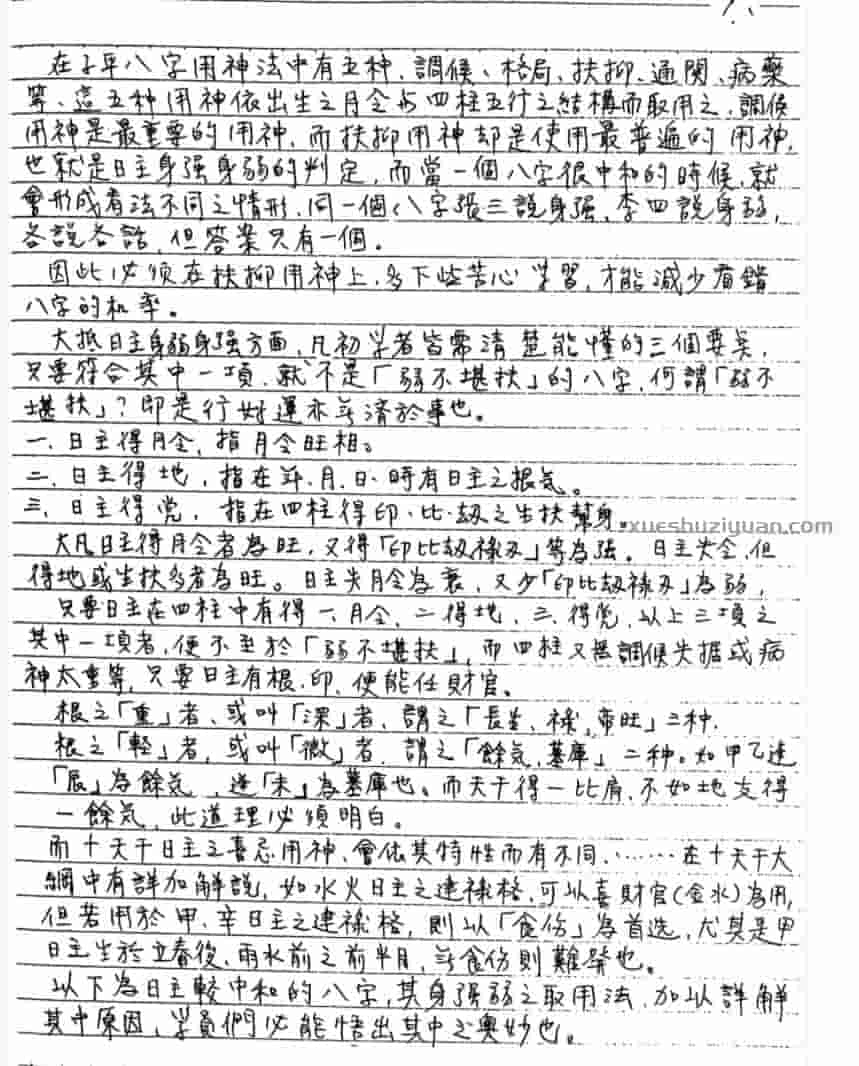 在子平八字用神法中有五种、調候、格局、扶抑、通関、病藥
等、這五种用神依出生之月令与四柱五行之結構而取用之、調候
用神是最重要的用神、而扶抑用神却是使用最普遍的用神、
也就是日主身强身弱的判定、而當一個八字很中和的時候、就
會形成看法不同之情形、同一個八字張三說身强、李四說身弱、
各說各話、但答案只有一個。
因此必須在扶抑用神上、多下些苦心学習、才能減少看錯
八字的机率。
大抵日主身弱身强方面、凡初学者皆需清楚能懂的三個要点、
只要符合其中一項、就不是「弱不堪扶」的八字、何謂「弱不
堪扶」？即是行好運亦无濟於事也。
一、日主得月令、指月令旺相。
二、日主得地，指在年、月、日、時有日主之根気。
三、日主得党，指在四柱得印、比、劫之生扶幫身。
xueshuziyuan.com
大凡日主得月令者為旺，又得「印比劫祿刃」等為强。日主失令、但
得地或生扶多者為旺。日主失月令為衰，又少「印比劫祿刃」為弱，
只要日主在四柱中有得一、月令、二得地、三、得党、以上三項之
其中一項者、便不至於「弱不堪扶」，而四柱又無調候失据或病
神太重等、只要日主有根、印、便能任財官。
根之「重」者、或叫「深」者、謂之「長生、祿、帝旺」三种、
根之「軽」者，或叫「微」者、謂之「餘気、墓庫」二种。如甲乙逢
「辰」為餘気，逢「未」為墓庫也。而天干得一比肩、不如地支得
一餘気、此道理必須明白。
而十天干日主之喜忌用神、會依其特性而有不同、……在十天干大
綱中有詳加解説，如水火日主之建祿格、可以喜財官(金水)為用，
但若用於甲、辛日主之建祿格，則以「食伤」為首选，尤其是甲
日主生於立春後、雨水前之前半月，无食伤則難発也。
以下為日主較中和的八字，其身强弱之取用法、加以詳解
其中原因，学員們必能悟出其中之奧妙也。